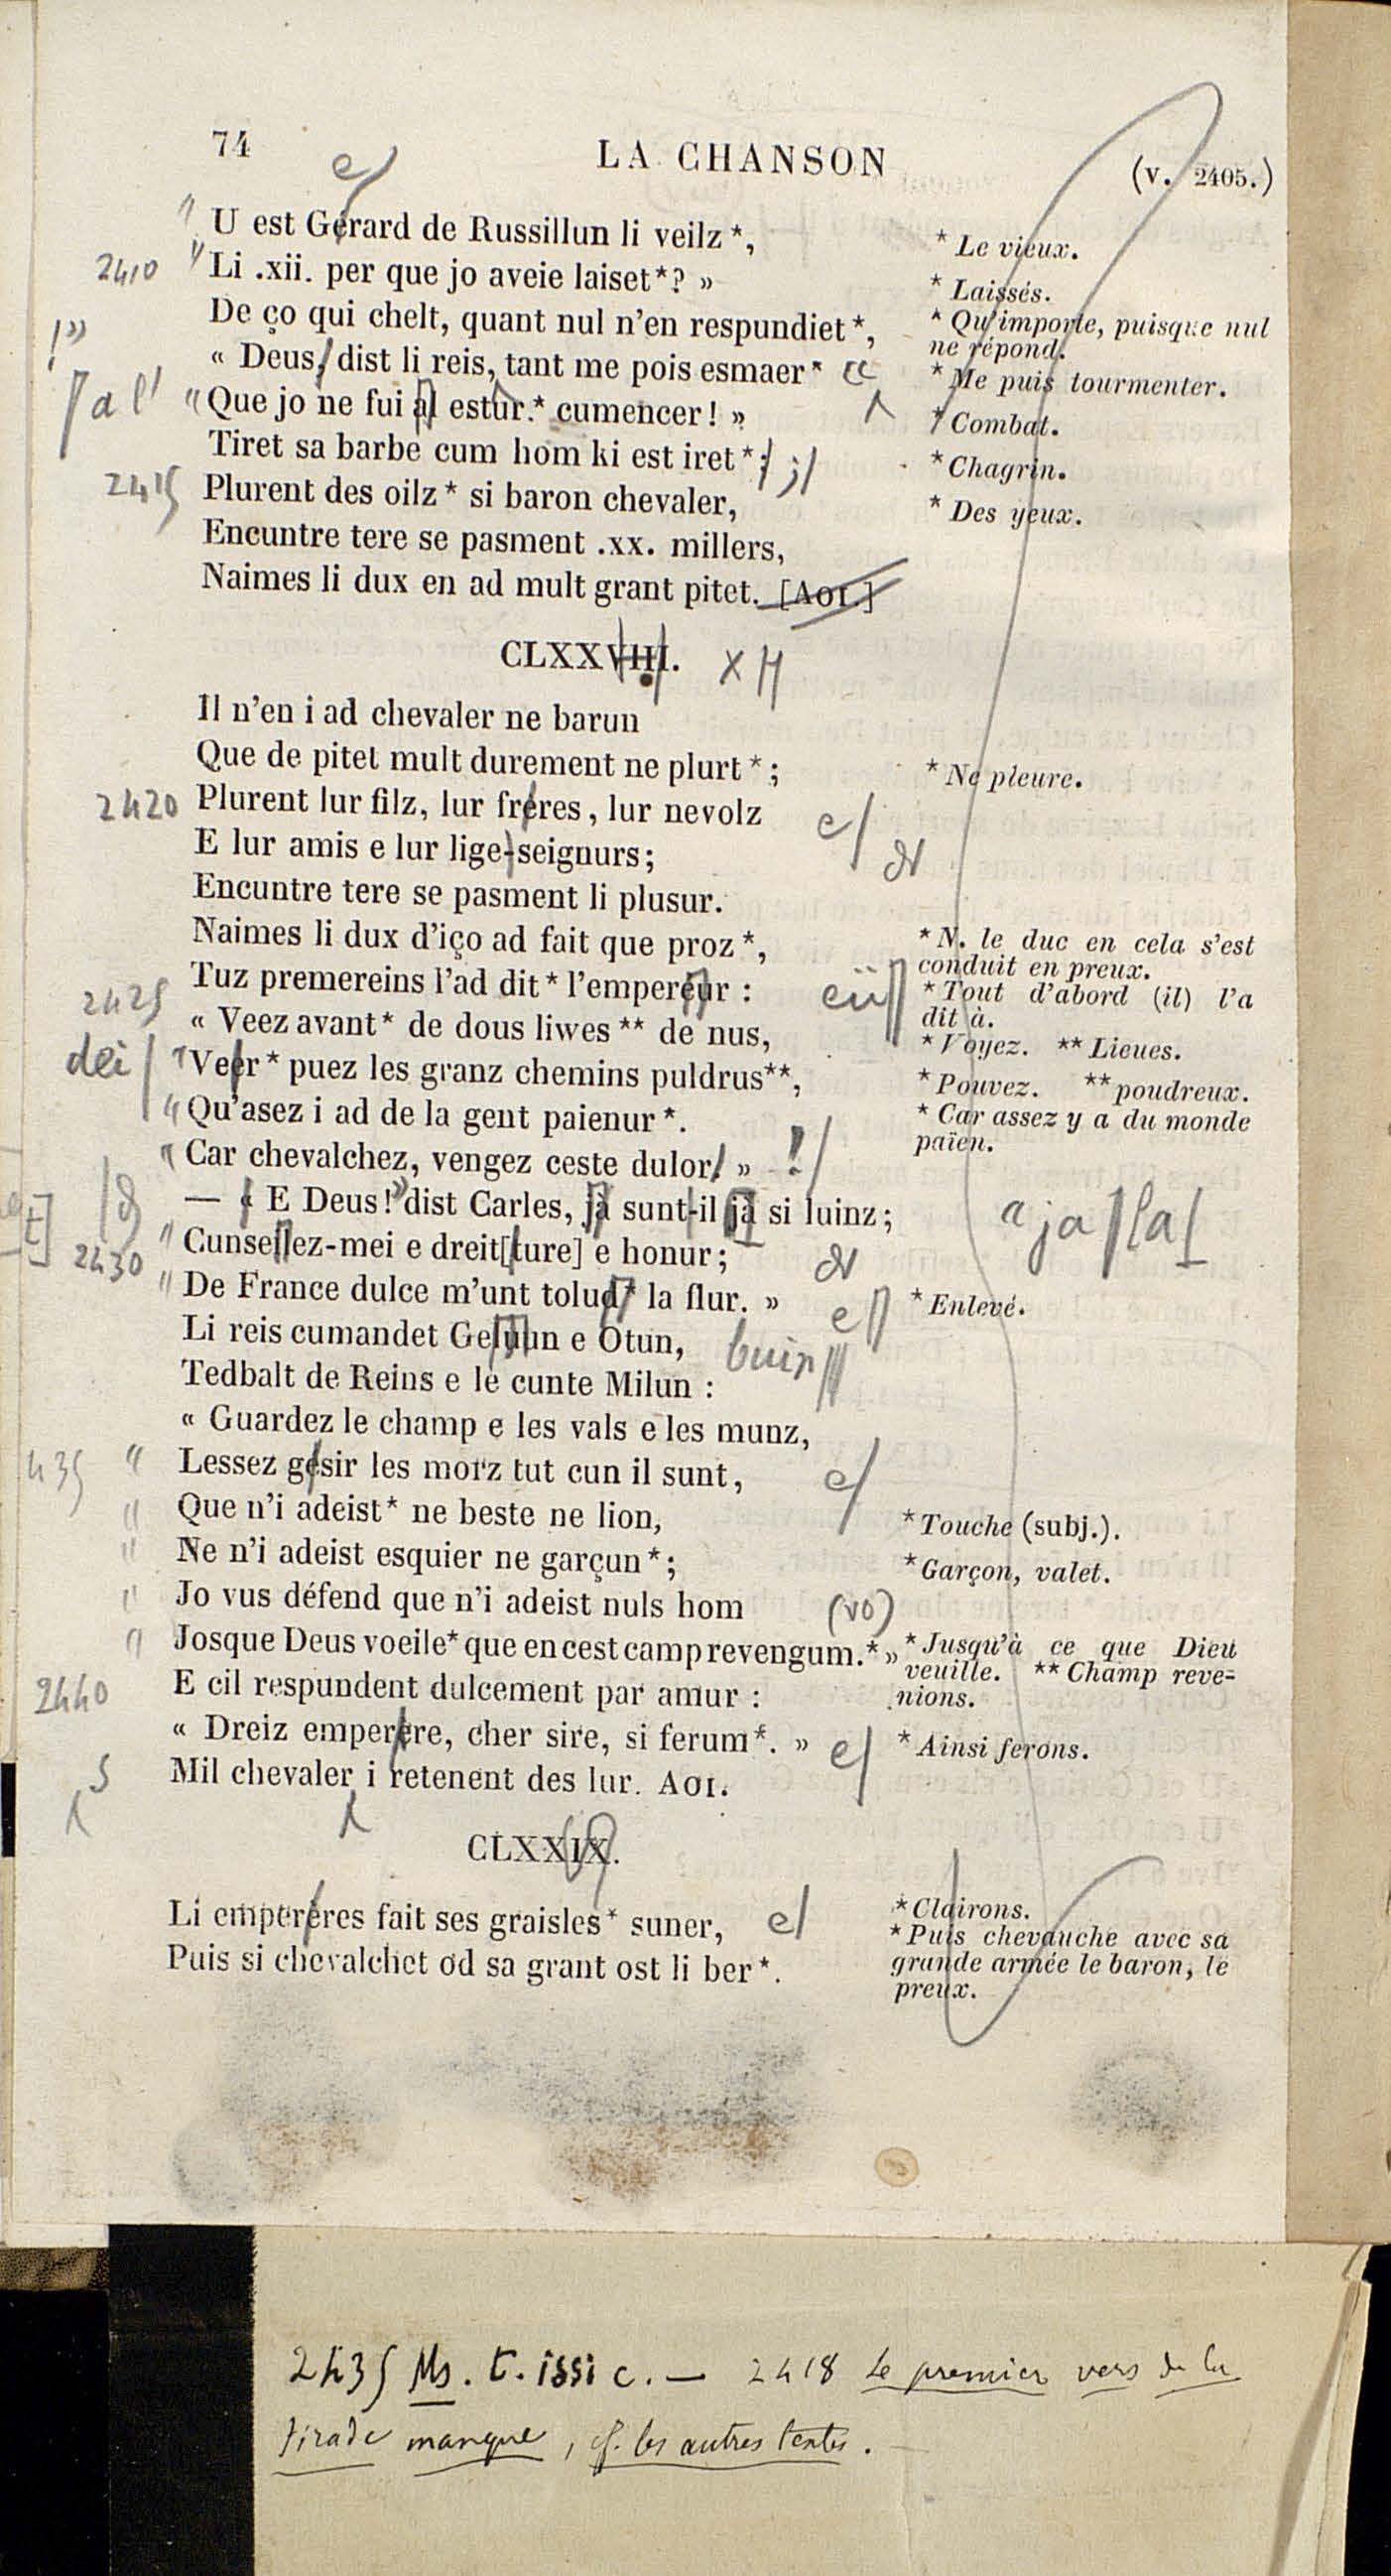 74
LA CHANSON
(v. 2405.)
e/
" U est Gérard de Russillun li veilz *,
* Le vieux.
2410 " Li .xii. per que jo aveie laiset*? »
* Laissés.
De ço qui chelt, quant nul n'en respundiet *,
* Qu'importe, puisque nul
ne répond.
!»
« Deus, dist li reis, tant me pois esmaer *
* Me puis tourmenter.
a l' " Que jo ne fui al estur.* cumencer! »
* Combat.
Tiret sa barbe cum hom ki est iret *: ;/
* Chagrin.
2415 Plurent des oilz * si baron chevaler,
* Des yeux.
Encuntre tere se pasment .xx. millers,
Naimes li dux en ad mult grant pitet. [AOI.]
CLXXVIII. X
Il n'en i ad chevaler ne barun
Que de pitet mult durement ne plurt *;
* Ne pleure.
2420 Plurent lur filz, lur fréres, lur nevolz e/
E lur amis e lur lige-seignurs;
Encuntre tere se pasment li plusur.
Naimes li dux d'iço ad fait que proz *,
* N. le duc en cela s'est
conduit en preux.
Tuz premereins l'ad dit * l'empereur : eü
* Tout d'abord (il) l'a
dit à.
2425 « Veez avant* de dous liwes ** de nus,
* Voyez. ** Lieues.
dei/ " Veer * puez les granz chemins puldrus**,
* Pouvez. ** poudreux.
" Qu'asez i ad de la gent paienur *.
* Car assez y a du monde
païen.
" Car chevalchez, vengez ceste dulor! » !/
— « E Deus!» dist Carles, jà sunt-il jà si luinz; " ja la
2430 " Cunsellez-mei e dreit[ture] e honur;
" De France dulce m'unt tolud* la flur. » e
* Enlevé.
Li reis cumandet Gebuun e Otun, buin
Tedbalt de Reins e le cunte Milun :
« Guardez le champ e les vals e les munz,
435 " Lessez gésir les morz tut cun il sunt, e/
" Que n'i adeist* ne beste ne lion,
* Touche (subj.).
" Ne n'i adeist esquier ne garçun *;
* Garçon, valet.
" Jo vus défend que n'i adeist nuls hom (vo)
" Josque Deus voeile* que en cest camp revengum.* »
* Jusqu'à ce que Dieu
veuille. ** Champ reve-
nions.
2440 E cil respundent dulcement par amur :
« Dreiz emperére, cher sire, si ferum*. » e/
* Ainsi ferons.
5 Mil chevaler i retenent des lur. AOI.
CLXXIX.
Li emperéres fait ses graisles* suner, e/
* Clairons.
Puis si chevalchet od sa grant ost li ber *.
* Puis chevauche avec sa
grande armée le baron, le
preux.
2435 Ms. t. issi c. — 2418 Le premier vers de la
tirade manque, cf. les autres textes.